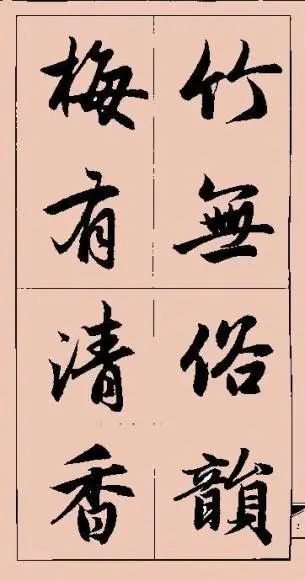 竹無俗韻
梅有清香
2